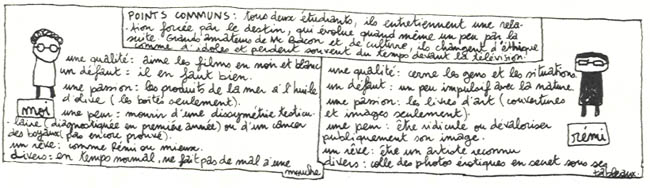 POINTS COMMUNS: tous deux étudiants, ils entretiennent une rela-
tion forcée par le destin, qui évolue quand même un peu par la
suite. Grands amateurs de Mr Bacon et de culture, ils changent d'éthique
comme d'idoles et perdent souvent du temps devant la télévision.
une qualité: aime les films en noir et blanc
un défaut: il en faut bien.
une passion: les produits de la mer à l'huile
d'olive (les boîtes seulement).
moi
une peur: mourir d'une dissymétrie testicu-
laire (diagnostiquée en première année) ou d'un cancer
des boyaux, pas encore prouvé.
un rêve: comme Rémi ou mieux.
divers: en temps normal, ne fait pas de mal à une
mouche
une qualité: cerne les gens et les situations.
un défaut: un peu impulsif avec la nature.
une passion: les livres d'art (couvertures
et images seulement).
une peur: être ridicule ou dévaloriser
publiquement son image.
rémi
un rêve: être un artiste reconnu
divers: colle des photos érotiques en secret sous ses
tableaux.